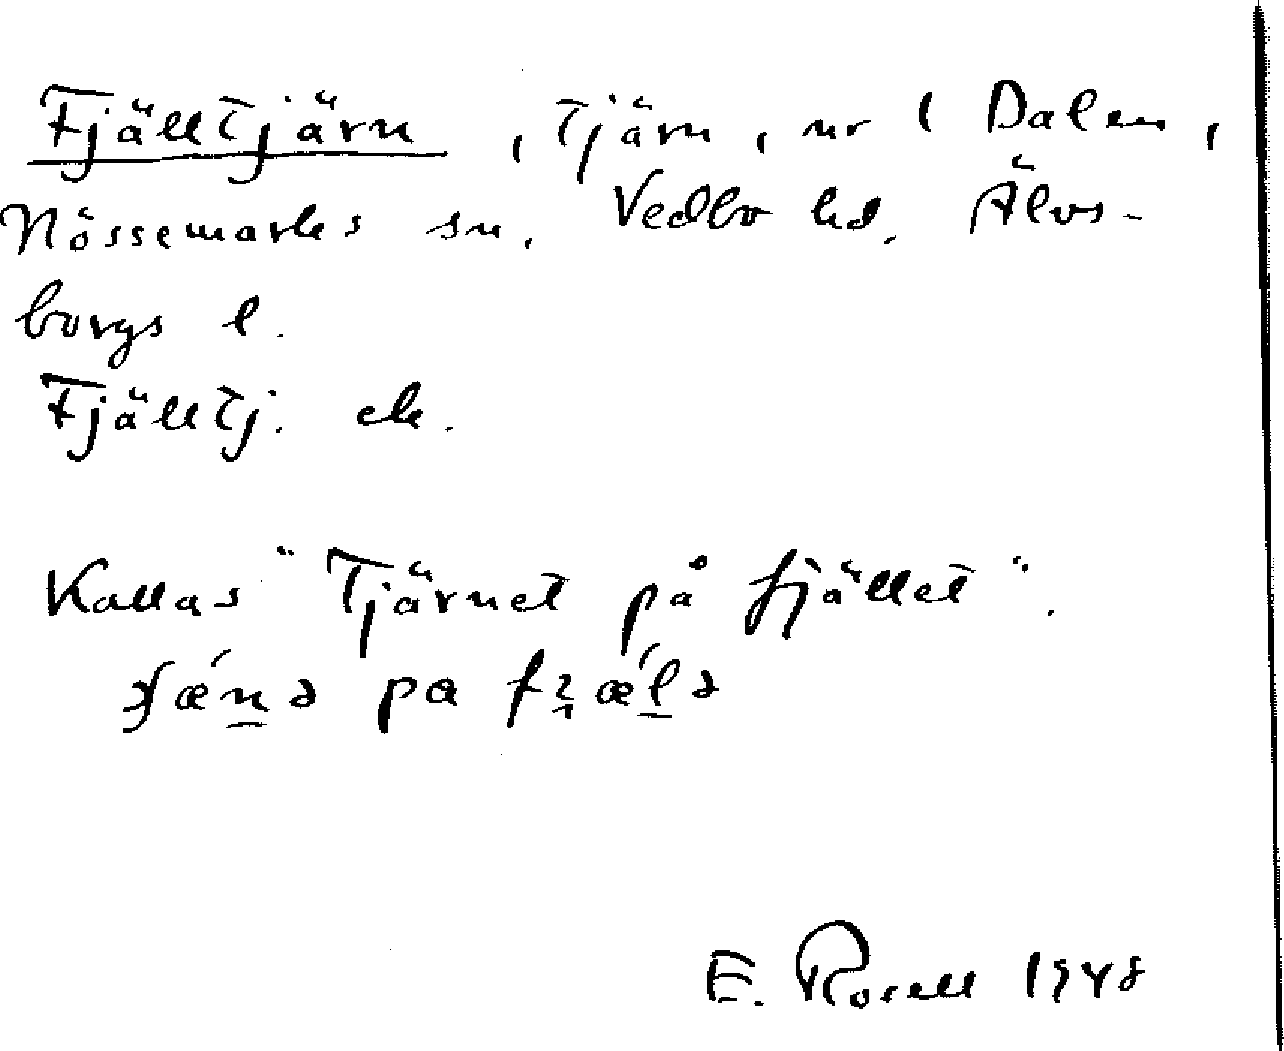 Fjälltjärn, tjärn, nr 1 Dalen,
Nössemarks sn. Vedbo hd. Älvs-
borgs l.
Fjälltj. ek.
Kallas "Tjärnet på fjället".
pa
E. Rosell 1948